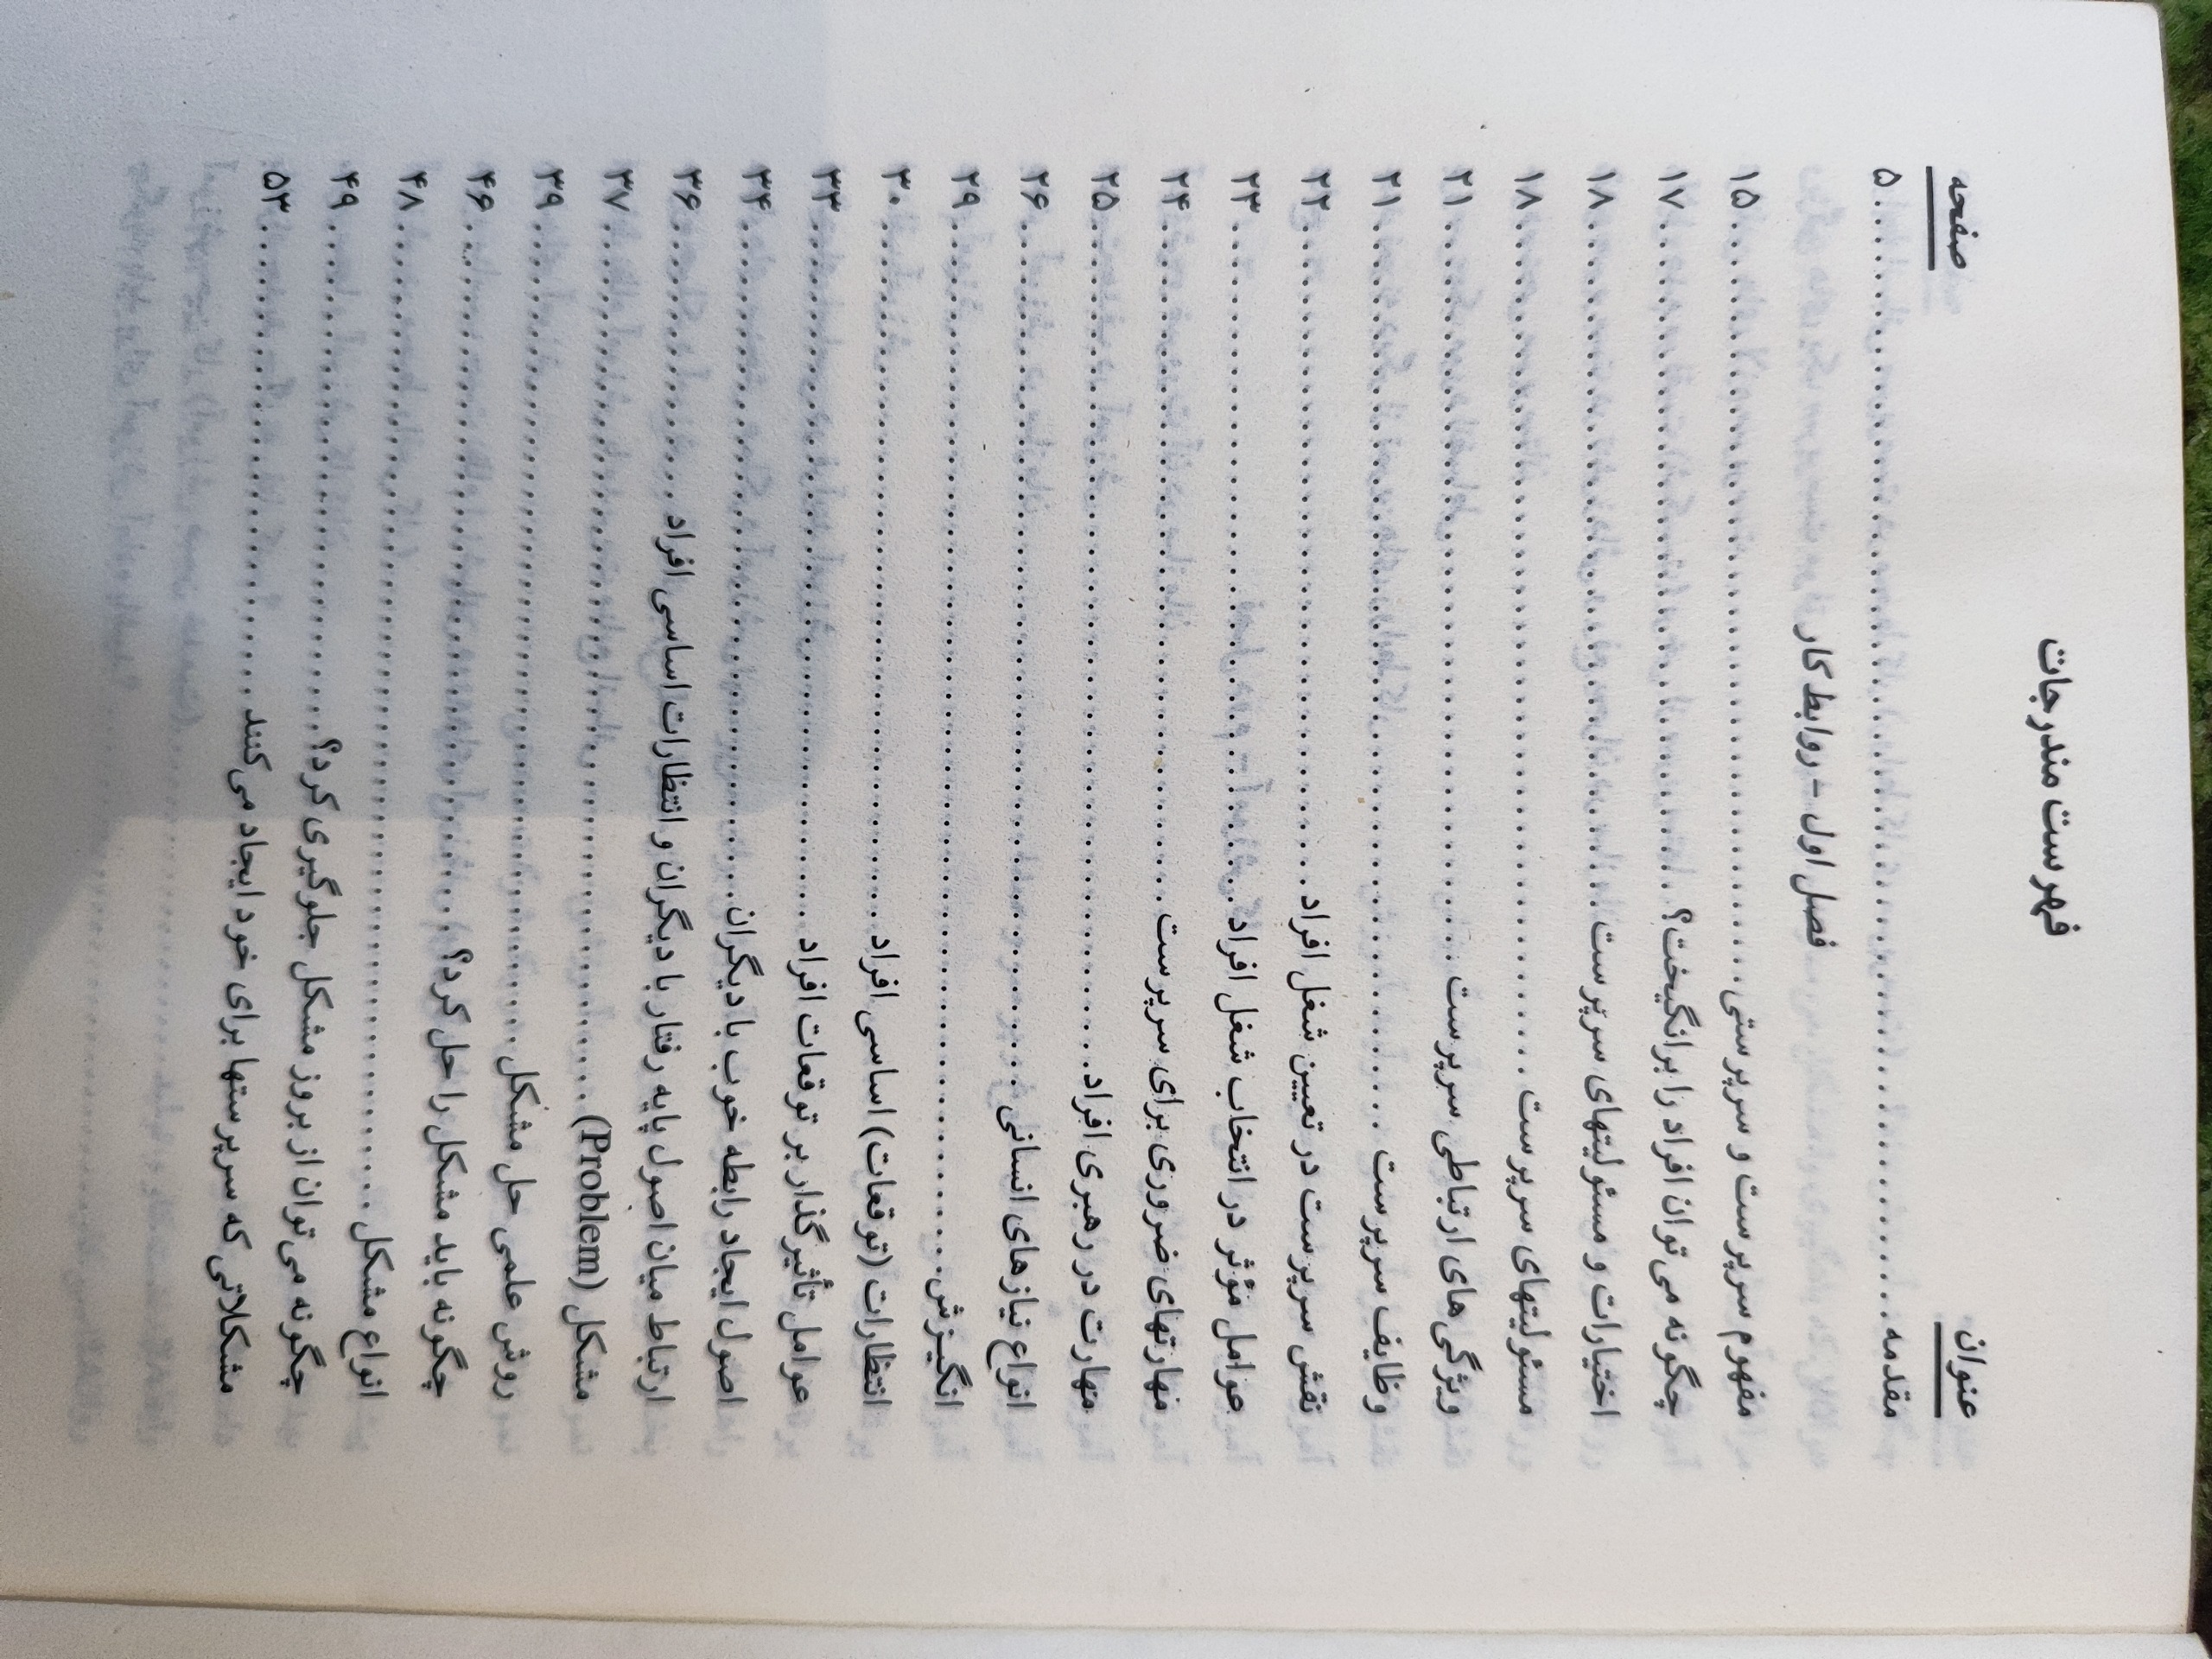 فهرست مندرجات
عنوان صفحه
مقدمه ..... ۵
فصل اول - روابط کار
مفهوم سرپرست و سرپرستی ..... ۱۵
چگونه می‌توان افراد را برانگیخت؟ ..... ۱۷
اختیارات و مسئولیتهای سرپرست ..... ۱۸
مسئولیتهای سرپرست ..... ۱۸
ویژگی های ارتباطی سرپرست ..... ۲۱
وظایف سرپرست ..... ۲۱
نقش سرپرست در تعیین شغل افراد ..... ۲۲
عوامل مؤثر در انتخاب شغل افراد ..... ۲۳
مهارتهای ضروری برای سرپرست ..... ۲۴
مهارت در رهبری افراد ..... ۲۵
انواع نیازهای انسانی ..... ۲۶
انگیزش ..... ۲۹
انتظارات (توقعات) اساسی افراد ..... ۳۰
عوامل تأثیرگذار بر توقعات افراد ..... ۳۳
اصول ایجاد رابطه خوب با دیگران ..... ۳۴
ارتباط میان اصول پایه رفتار با دیگران و انتظارات اساسی افراد ..... ۳۶
مشکل (Problem) ..... ۳۷
روش علمی حل مشکل ..... ۳۹
چگونه باید مشکل را حل کرد؟ ..... ۴۶
انواع مشکل ..... ۴۸
چگونه می‌توان از بروز مشکل جلوگیری کرد؟ ..... ۴۹
مشکلاتی که سرپرستها برای خود ایجاد می‌کنند ..... ۵۳